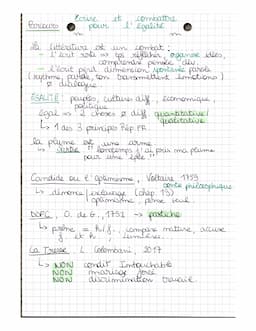 Parcours Écrire et combattre
pour l'égalité
La littérature est un combat :
- l'écrit seul => se réfléchir, organise idées,
comprendre pensée
- l'écrit peut dimension spontanée parole
(rythme, parole, ton transmettent émotions)
≠ dialogue
ÉGALITÉ : peuples, cultures diff, économique,
politique
égal => 2 choses ≠ diff quantitative/
qualitative
↳ 1 des 3 principes Rép. FR.
la plume est une arme
↳ Sartre "longtemps j'ai pris ma plume
pour une épée"
Candide ou l'optimisme, Voltaire 1759
conte philosophique
↳ dénonce esclavage (chap. 19)
optimisme, pense seul.
DDFC, O. de G., 1791 → pastiche
↳ prône = h/f, compare nature, accuse
Lumières.
La Tresse, L. Colombani, 2017
↳ NON condit° Intouchable
NON mariage forcé
NON discrimination travail